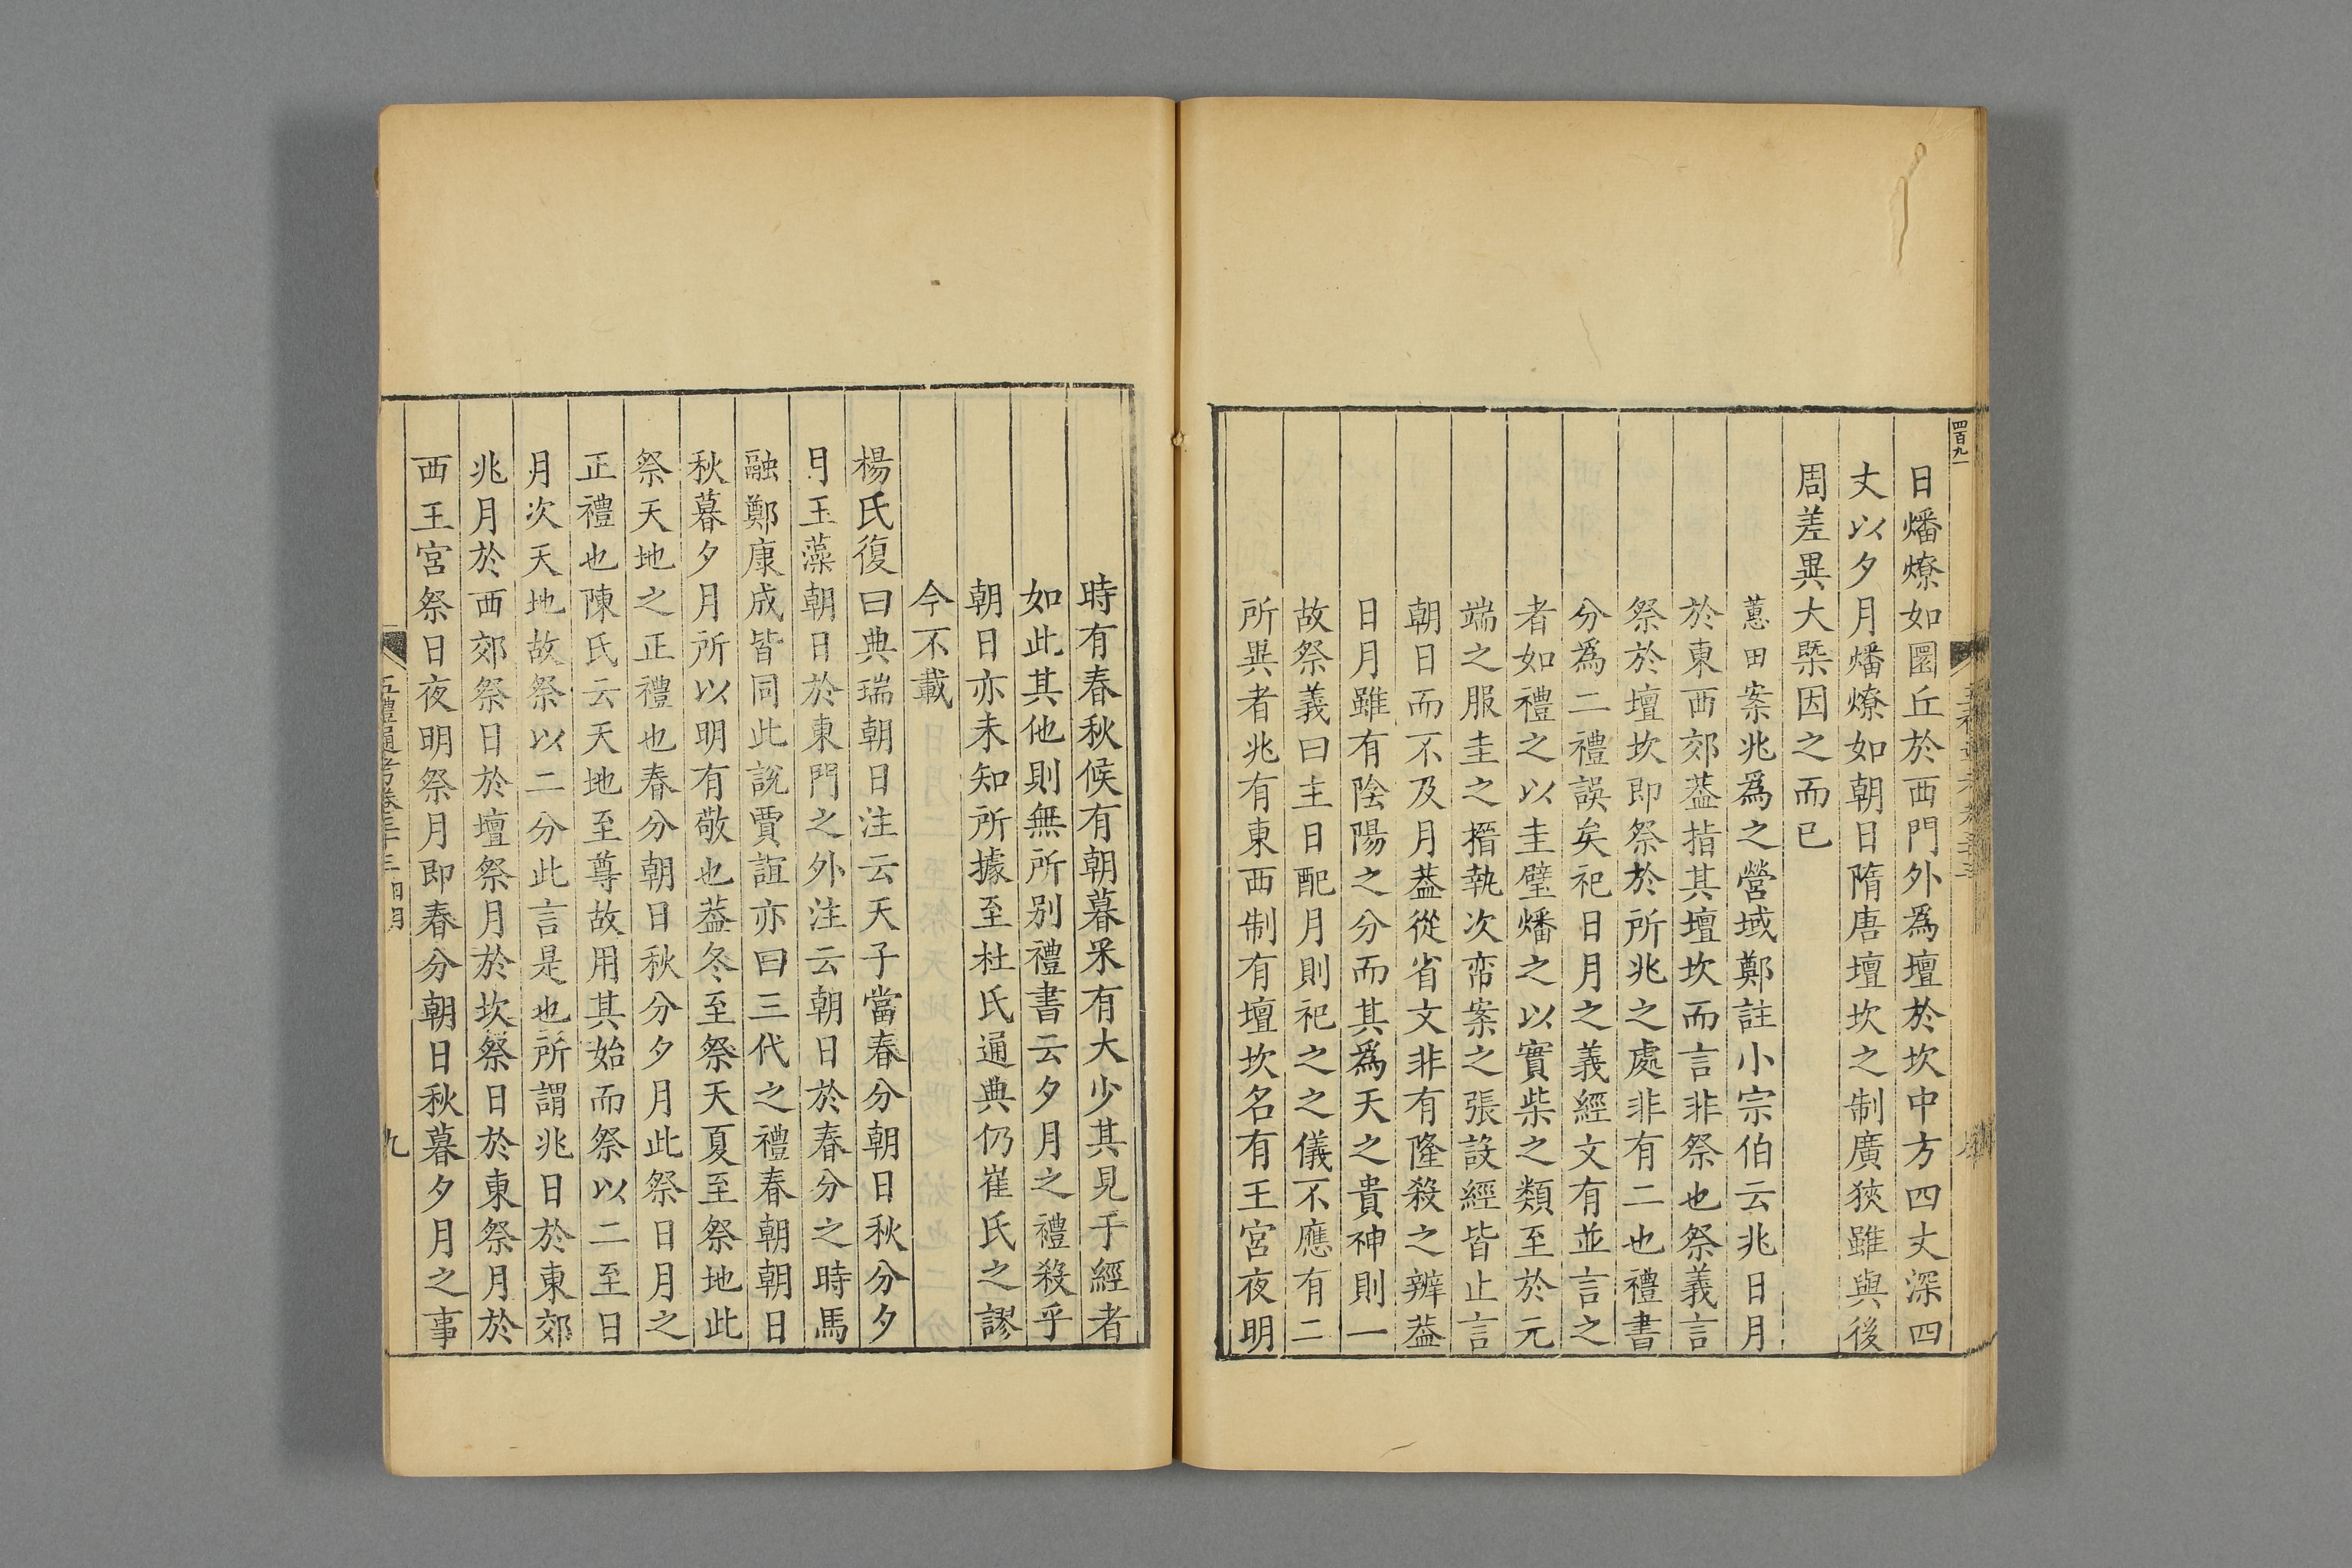 四百九一
日燔燎如圜丘於西門外爲壇於坎中方四丈深四
丈以夕月燔燎如朝日隋唐壇坎之制廣狹雖與後
周差異大槩因之而已
蕙田案兆爲之營域鄭註小宗伯云兆日月
於東西郊葢指其壇坎而言非祭也祭義言
祭於壇坎即祭於所兆之處非有二也禮書
分爲二禮誤矣祀日月之義經文有並言之
者如禮之以圭璧燔之以實柴之類至於元
端之服圭之搢執次帟案之張設經皆止言
朝日而不及月葢從省文非有隆殺之辨葢
日月雖有陰陽之分而其爲天之貴神則一
故祭義曰主日配月則祀之之儀不應有二
所異者兆有東西制有壇坎名有王宮夜明
時有春秋候有朝暮采有大少其見于經者
如此其他則無所別禮書云夕月之禮殺乎
朝日亦未知所據至杜氏通典仍崔氏之謬
今不載
楊氏復曰典瑞朝日注云天子當春分朝日秋分夕
月玉藻朝日於東門之外注云朝日於春分之時馬
融鄭康成皆同此說賈誼亦曰三代之禮春朝朝日
秋暮夕月所以明有敬也葢冬至祭天夏至祭地此
祭天地之正禮也春分朝日秋分夕月此祭日月之
正禮也陳氏云天地至尊故用其始而祭以二至日
月次天地故祭以二分此言是也所謂兆日於東郊
兆月於西郊祭日於壇祭月於坎祭日於東祭月於
西王宮祭日夜明祭月即春分朝日秋暮夕月之事
五禮通考卷三十三
九